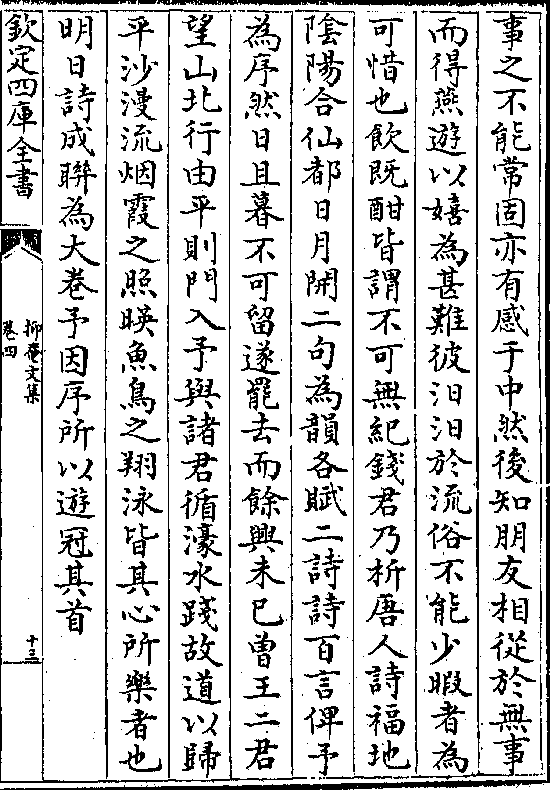 事之不能常固亦有感于中然後知朋友相從於無事
而得燕遊以嬉為甚難彼汨汨於流俗不能少暇者為
可惜也飲既酣皆謂不可無紀錢君乃析唐人詩福地
陰陽合仙都日月開二句為韻各賦二詩詩百言俾予
為序然日且暮不可留遂罷去而餘興未已曾王二君
望山北行由平則門入予與諸君循濠水踐故道以歸
平沙漫流烟霞之照暎魚鳥之翔泳皆其心所樂者也
明日詩成聨為大卷予因序所以遊冠其首
欽定四庫全書
抑菴文集
卷四
十三